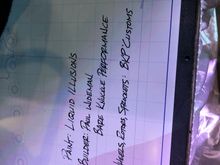 PAINT: LIQUID ILLUSIONS
BUILDER: PAUL WIDEMAN
BARE KNUCKLE PERFORMANCE
WHEELS, ROTORS, SPROCKETS: BKP CUSTOMS